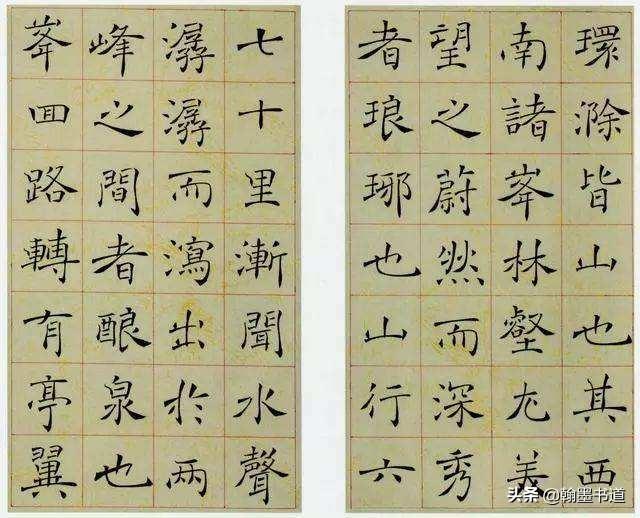 環滁皆山也其西
南諸峯林壑尤美
望之蔚然而深秀
者琅琊也山行六
七十里漸聞水聲
潺潺而瀉出於兩
峰之間者酿泉也
峯回路轉有亭翼
头条 @翰墨书道